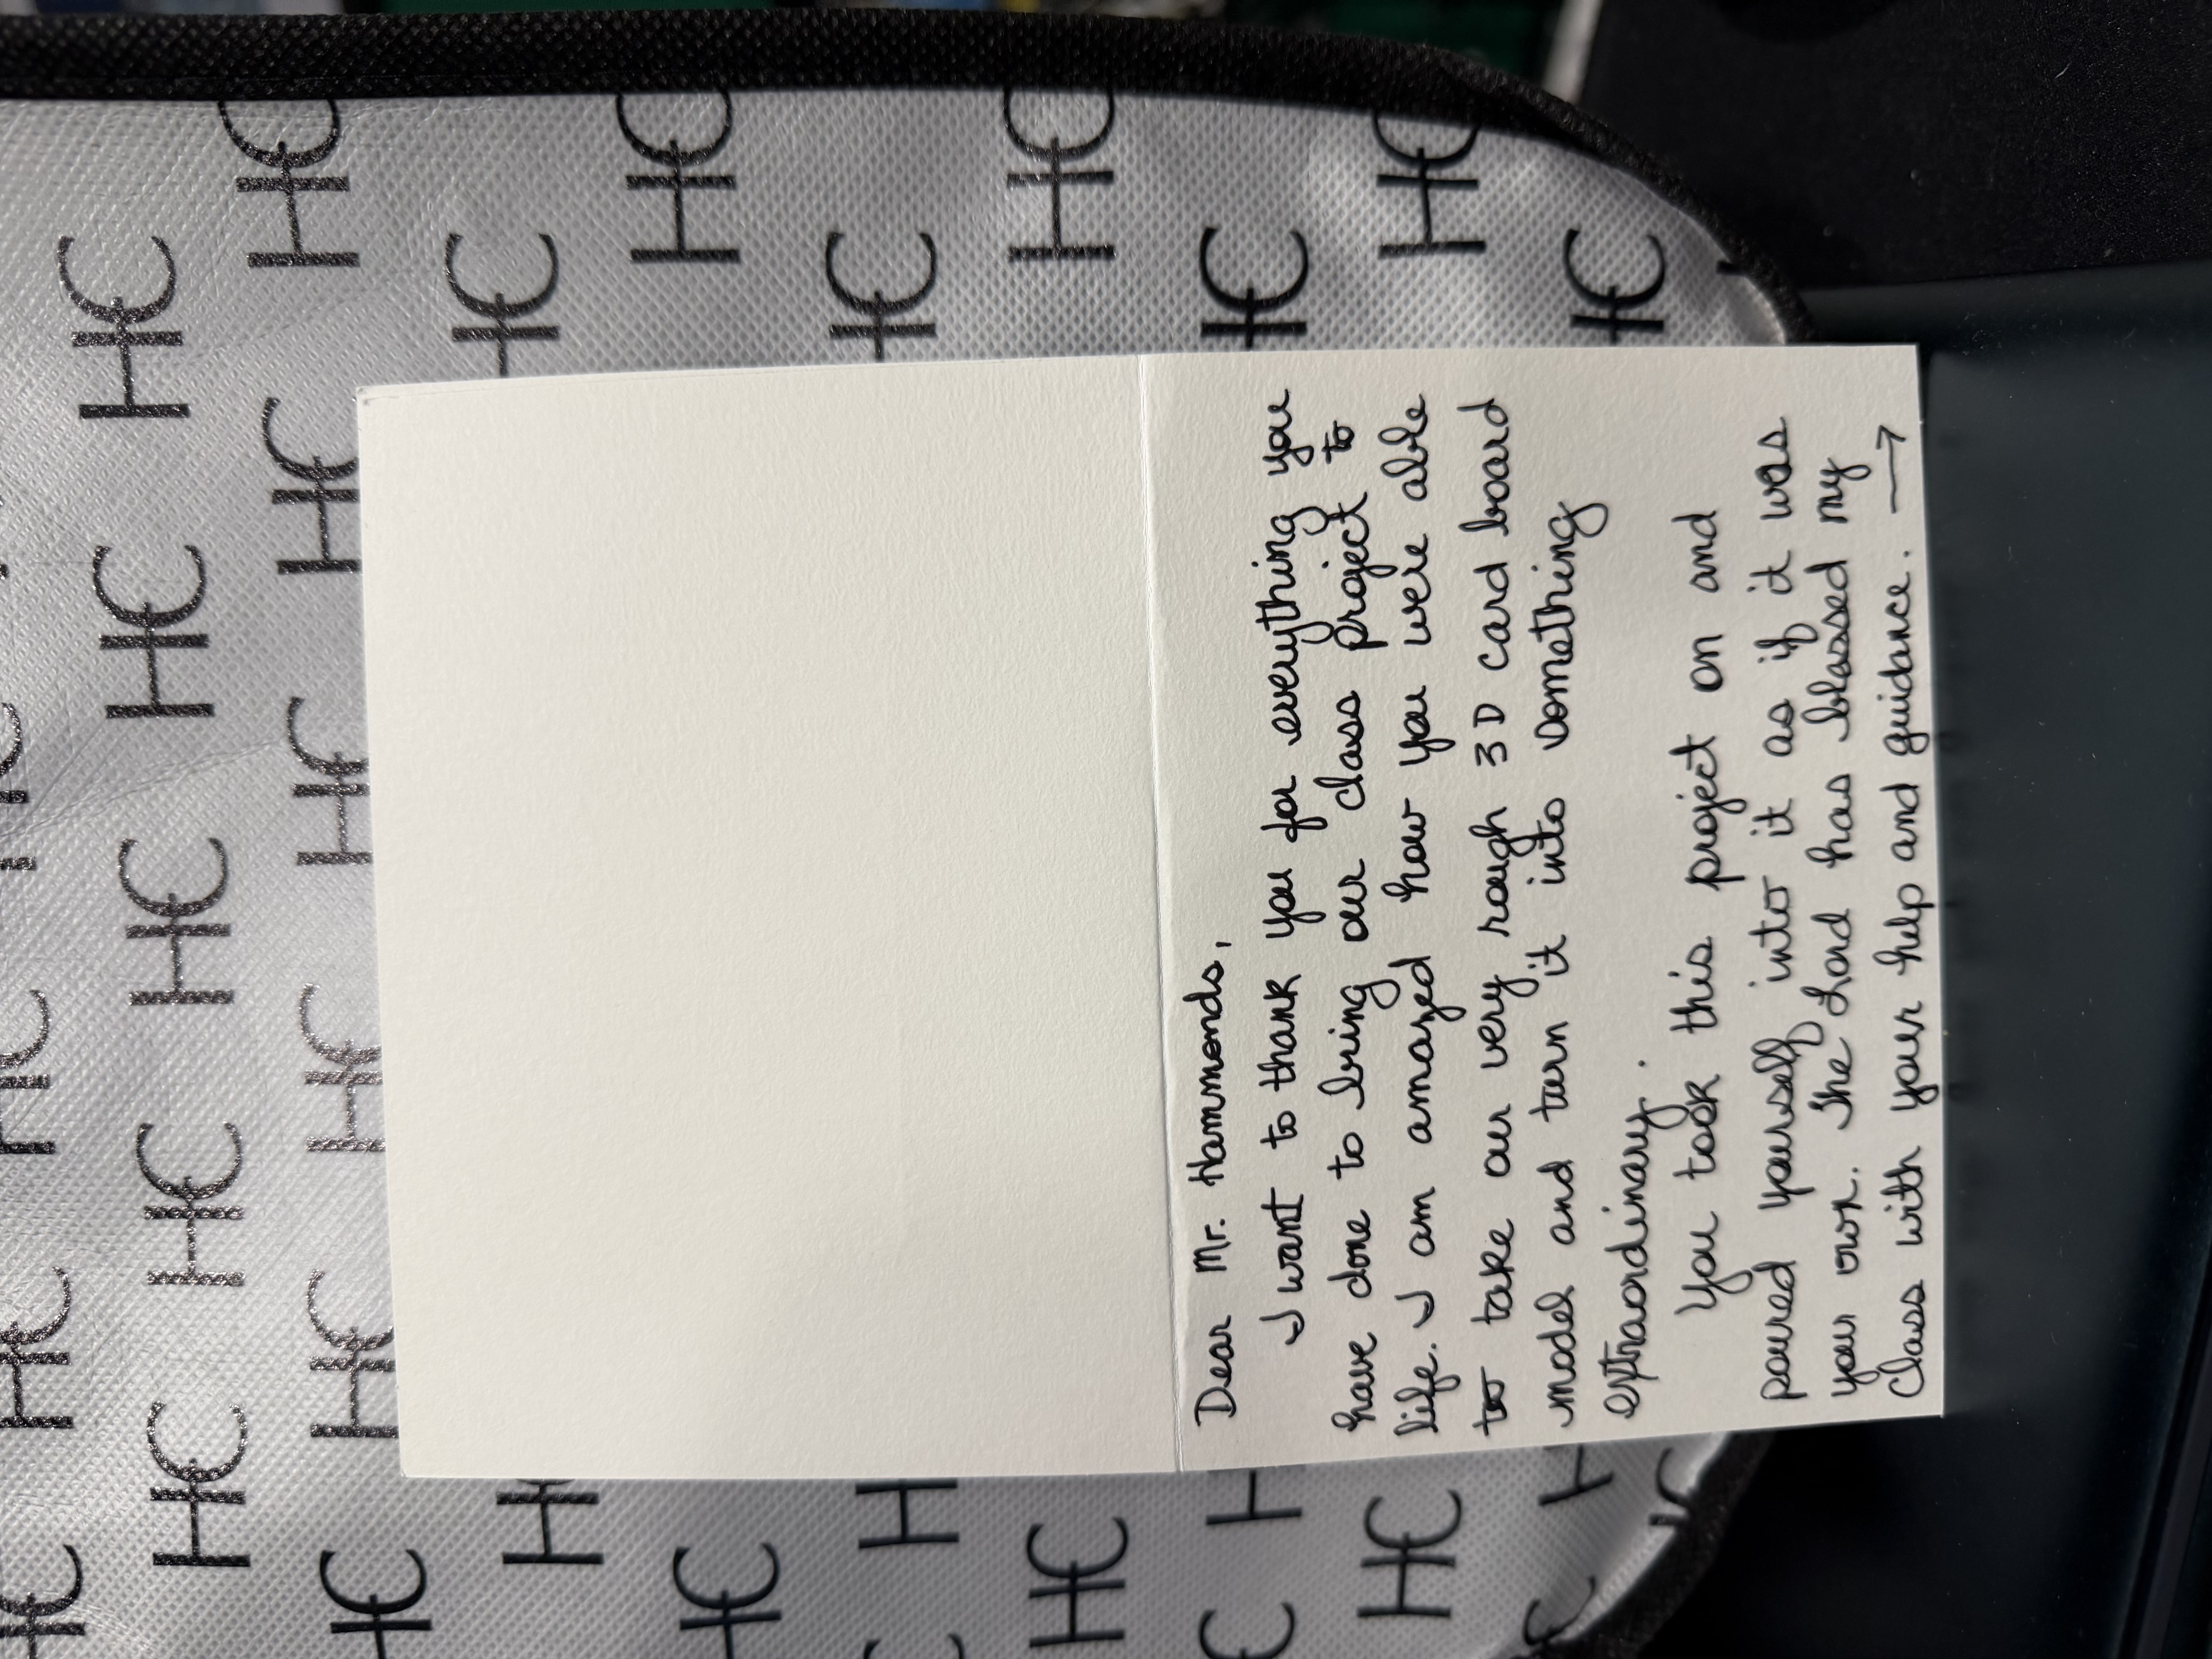 HC
Dear Mr. Hammonds,
I want to thank you for everything you
have done to bring our class project to
life. I am amazed how you were able
to take our very rough 3D card board
model and turn it into something
extraordinary.
You took this project on and
poured yourself into it as if it was
your own. The Lord has blessed my
class with your help and guidance. →